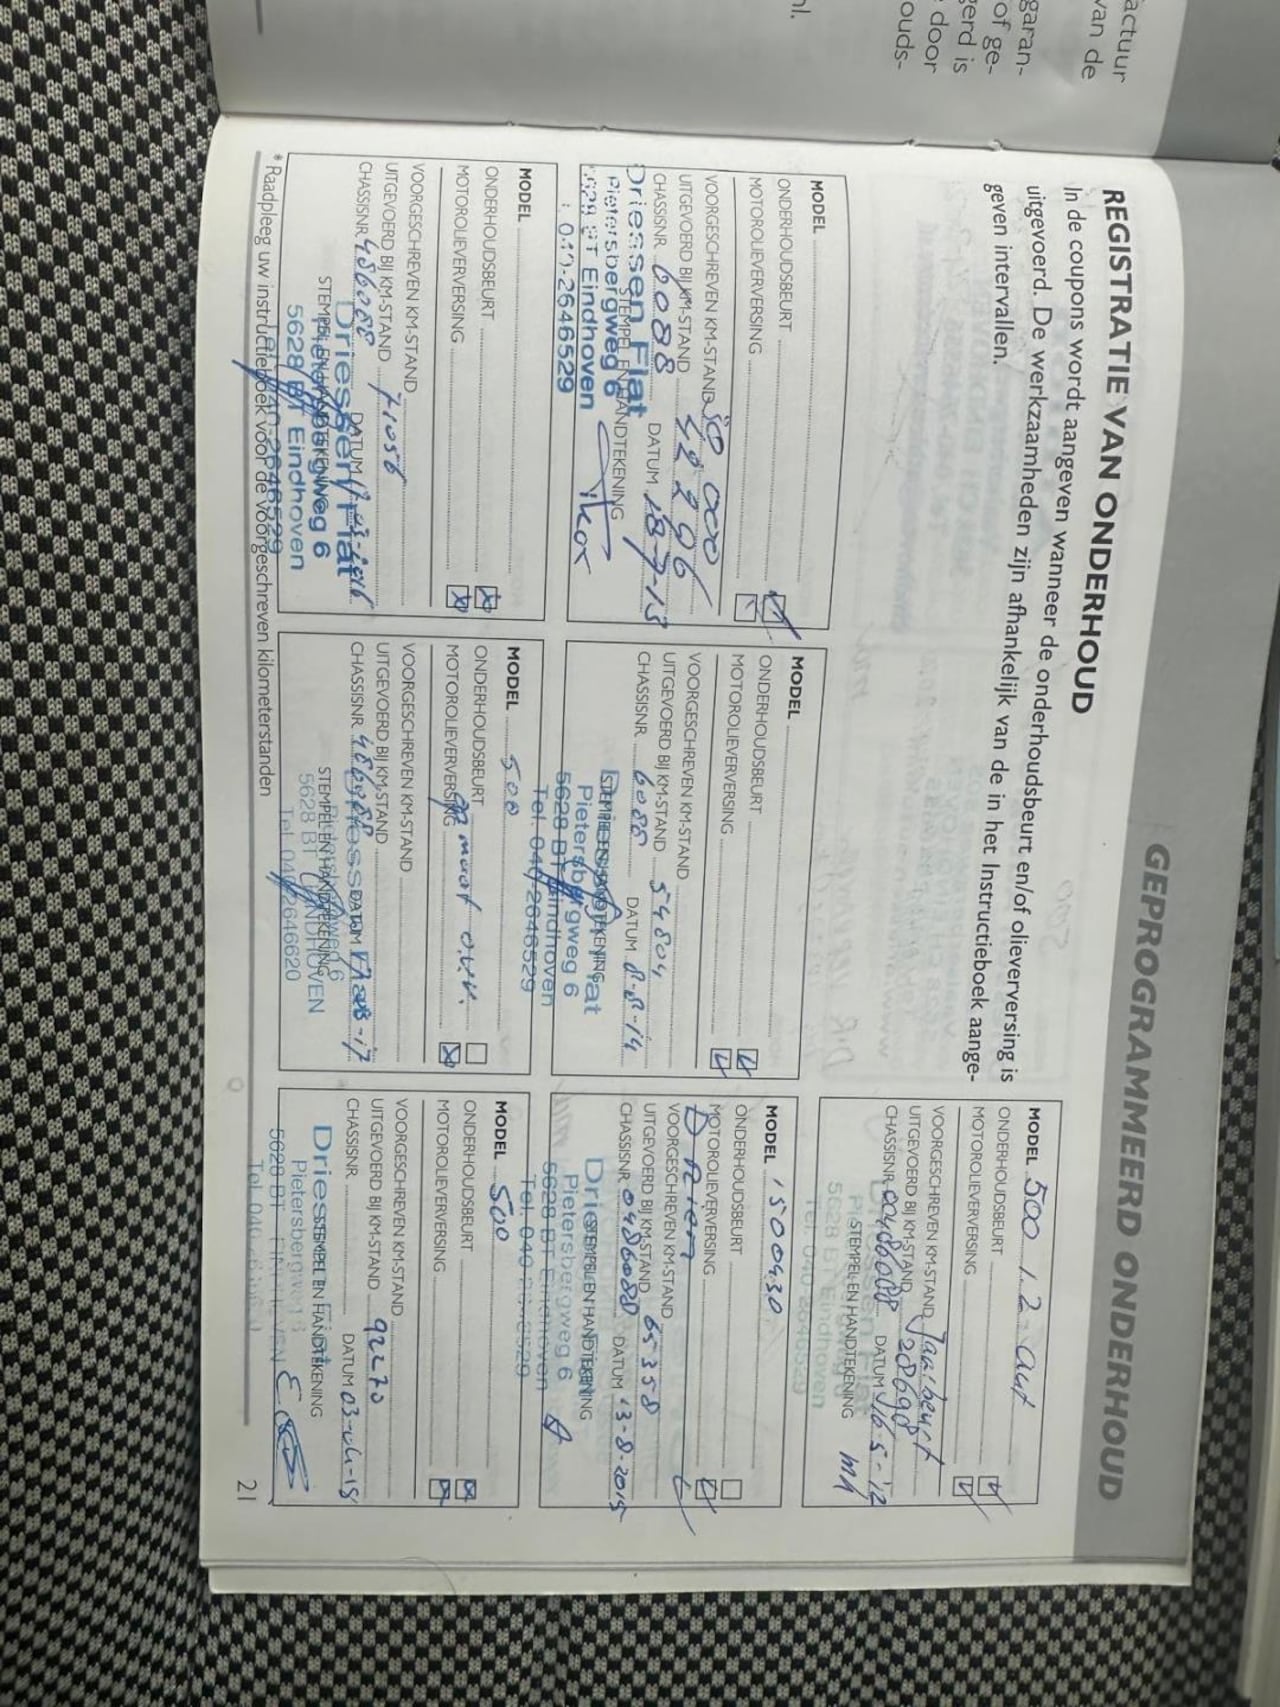 actuur
van de
garan-
of ge-
gerd is
door
ouds-
nl.
GEPROGRAMMEERD ONDERHOUD
REGISTRATIE VAN ONDERHOUD
In de coupons wordt aangegeven wanneer de onderhoudsbeurt en/of olieverversing is
uitgevoerd. De werkzaamheden zijn afhankelijk van de in het Instructieboek aange-
geven intervallen.
MODEL 500 1.2 aut
ONDERHOUDSBEURT
MOTOROLIEVERVERSING
VOORGESCHREVEN KM-STAND Jaarbeurt
UITGEVOERD BIJ KM-STAND 28690
CHASSISNR. 00486088 DATUM 16-5-'12
STEMPEL EN HANDTEKENING
Driessen Fiat
Pietersbergweg 6
5628 BT Eindhoven
Tel. 040-2646529
MODEL
ONDERHOUDSBEURT
MOTOROLIEVERVERSING
VOORGESCHREVEN KM-STAND 50 000
UITGEVOERD BIJ KM-STAND 42296
CHASSISNR. 6088 DATUM 18-7-13
STEMPEL EN HANDTEKENING
Driessen Fiat
Pietersbergweg 6
5628 BT Eindhoven
: 040-2646529
MODEL
ONDERHOUDSBEURT
MOTOROLIEVERVERSING
VOORGESCHREVEN KM-STAND
UITGEVOERD BIJ KM-STAND 54804
CHASSISNR. 6088 DATUM 8-8-14
STEMPEL EN HANDTEKENING
Fiat
Pietersbergweg 6
5628 BT Eindhoven
Tel. 040-2646529
MODEL 1500430
ONDERHOUDSBEURT
MOTOROLIEVERVERSING
VOORGESCHREVEN KM-STAND
UITGEVOERD BIJ KM-STAND 65358
CHASSISNR 0486088 DATUM 13-8-2015
STEMPEL EN HANDTEKENING
Pietersbergweg 6
5628 BT Eindhoven
Tel. 040
MODEL
ONDERHOUDSBEURT
MOTOROLIEVERVERSING
VOORGESCHREVEN KM-STAND
UITGEVOERD BIJ KM-STAND 71056
CHASSISNR. 486088 DATUM
STEMPEL EN HANDTEKENING
Driessen Fiat
Pietersbergweg 6
5628 BT Eindhoven
Tel. 040-2646529
MODEL 500
ONDERHOUDSBEURT
MOTOROLIEVERVERSING
VOORGESCHREVEN KM-STAND
UITGEVOERD BIJ KM-STAND
CHASSISNR. 486088 DATUM
STEMPEL EN HANDTEKENING
5628 BT EINDHOVEN
Tel. 040 2646620
MODEL 500
ONDERHOUDSBEURT
MOTOROLIEVERVERSING
VOORGESCHREVEN KM-STAND
UITGEVOERD BIJ KM-STAND 92270
CHASSISNR. DATUM 03-04-18
STEMPEL EN HANDTEKENING
Pietersbergweg 6
5628 BT
Tel. 040
* Raadpleeg uw instructieboek voor de voorgeschreven kilometerstanden
21